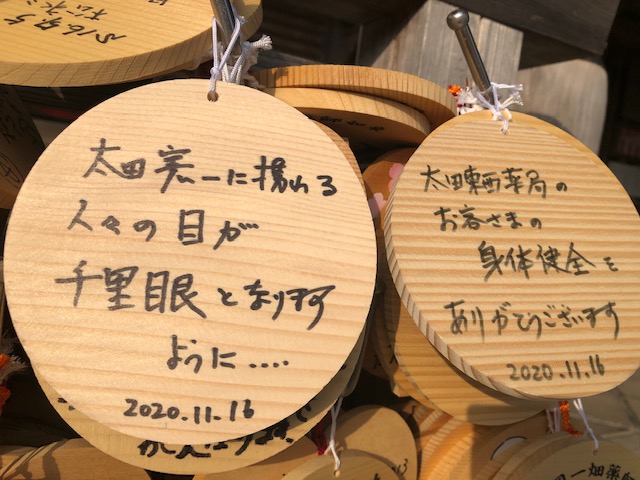 太田宏一に携わる
人々の目が
千里眼となります
ように....
2020.11.16
太田東西薬局の
お客さまの
身体健全を
ありがとうございます
2020.11.16
一畑薬師